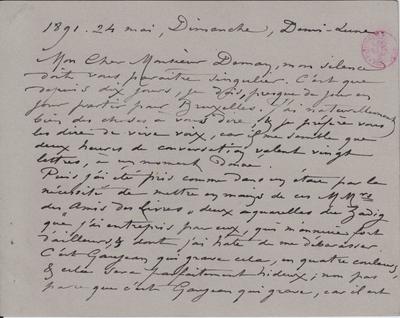 1891. 24 mai, Dimanche, Demi-Lune
Mon Cher Monsieur Deman, mon silence
doit vous paraître singulier. C'est que
depuis dix jours, je dois, presque de jour en
jour partir pour Bruxelles. J'ai naturellement
bien des choses à vous dire, & je préfère vous
les dire de vive voix, car il me semble que
deux heures de conversation valent vingt
lettres, à un moment donné.
Puis j'ai été pris comme dans un étau par la
nécessité de mettre en mains de ces MMrs
des Amis des Livres, deux aquarelles du Zadig
que j'ai entrepris pour eux, qui m'ennuie fort
d'ailleurs, & dont j'ai hâte de me débarasser.
C'est Gaujean qui grave cela, en quatre couleurs,
& cela sera parfaitement hideux; non pas
parce que c'est Gaujean qui grave, car il est